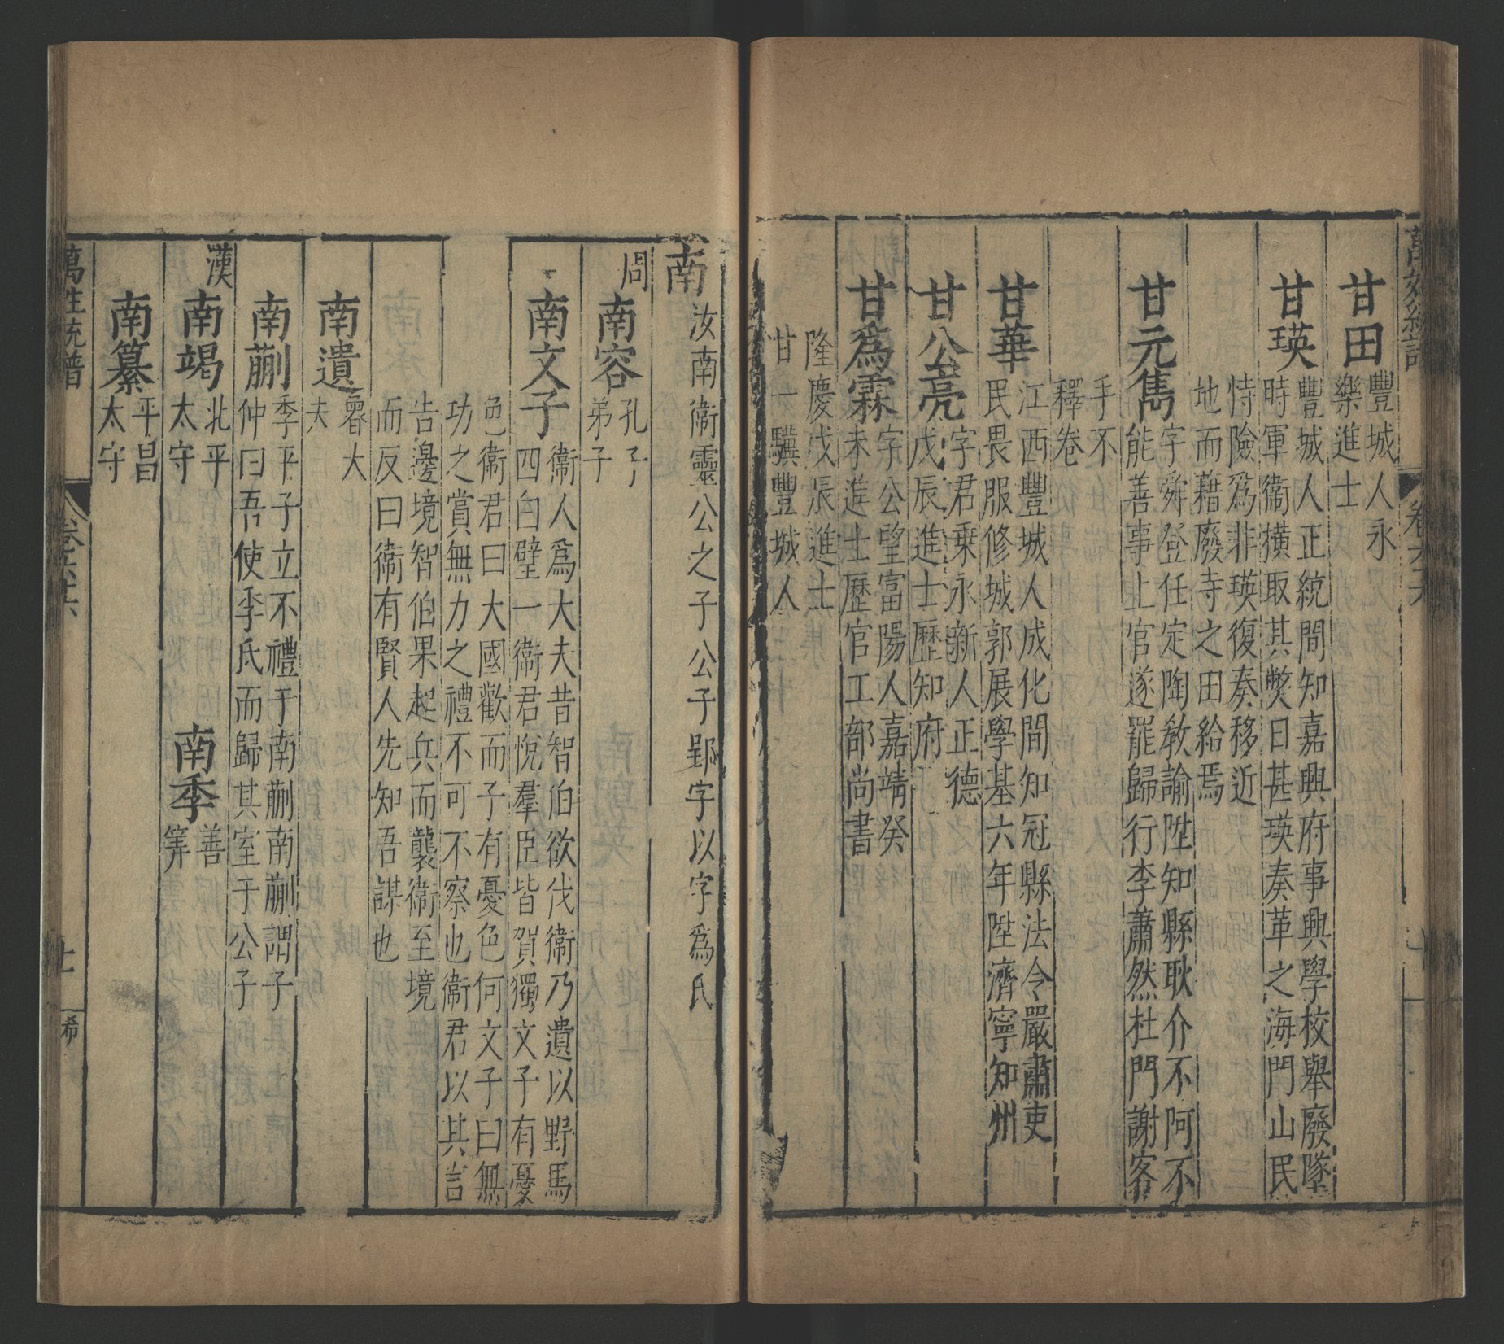 甘田
豐城人永
樂進士
甘瑛
豐城人正統間知嘉興府事興學校舉廢墜
時軍衛橫取其獘日甚瑛奏革之海門山民
恃險爲非瑛復奏移近
地而藉廢寺之田給焉
甘元雋
字舜登任定陶敎諭陞知縣耿介不阿不
能善事上官遂罷歸行李蕭然杜門謝客
手不
釋卷
甘華
江西豐城人成化間知冠縣法令嚴肅吏
民畏服修城郭展學基六年陞濟寧知州
甘公亮
字君乗永新人正德
戊辰進士歷知府
甘為霖
字公望富陽人嘉靖癸
未進士歷官工部尚書
隆慶戊辰進士
甘一驥豐城人
南
汝南衛靈公之子公子郢字以字爲氏
周
南容
孔子
弟子
南文子
衛人爲大夫昔智伯欲伐衛乃遺以野馬
四白璧一衛君悅羣臣皆賀獨文子有憂
色衛君曰大國歡而子有憂色何文子曰無
功之賞無力之禮不可不察也衛君以其言
告邊境智伯果起兵而襲衛至境
而反曰衛有賢人先知吾謀也
南遺
魯大
夫
南蒯
季平子立不禮于南蒯南蒯謂子
仲曰吾使季氏而歸其室于公子
漢
南竭
北平
太守
南季
善
筭
南纂
平昌
太守
萬姓統譜
卷六十六
七